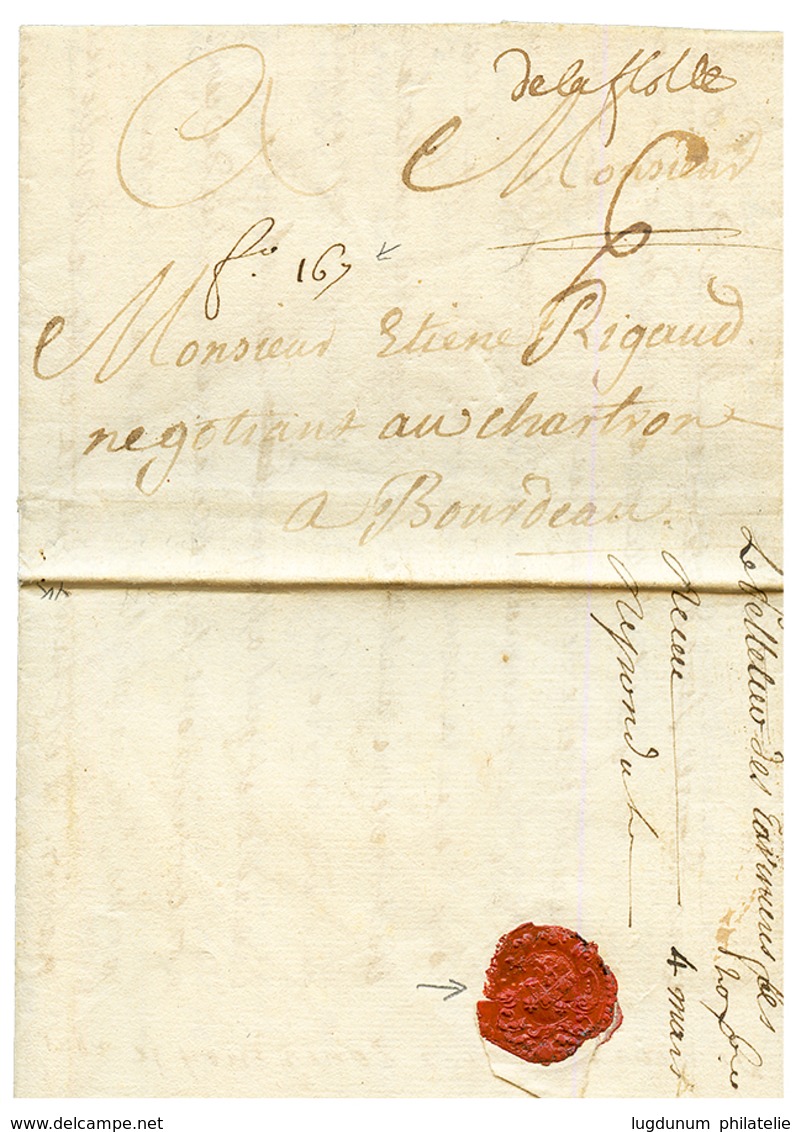 dela flolle
A Monsieur
6
fo. 167
Monsieur Etiene Rigaud.
negotiant au chartron
a Bourdeau.
Le des des
Receu 4 mars
Repondu le
www.delcampe.net
lugdunum philatelie